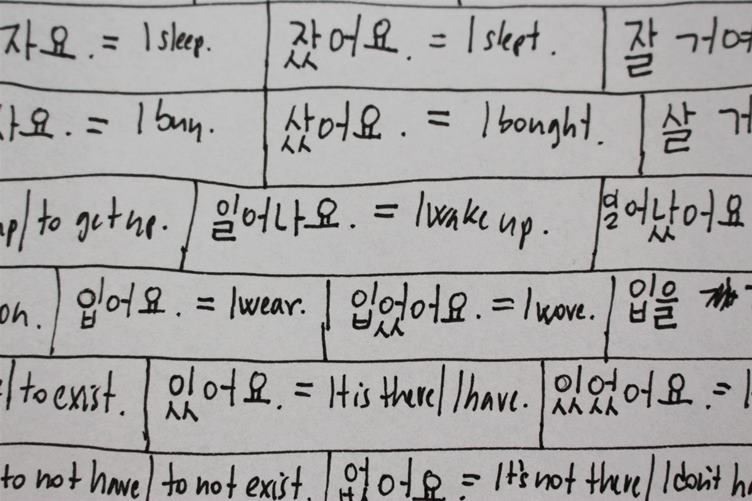 자요. = I sleep. 잤어요. = I slept. 잘 거예
사요. = I buy. 샀어요. = I bought. 살 거
up/to get up. 일어나요. = I wake up. 일어났어요
on. 입어요. = I wear. 입었어요. = I wore. 입을
/to exist. 있어요. = It is there/I have. 있었어요. = I
to not have/to not exist. 없어요 = It's not there/I don't h